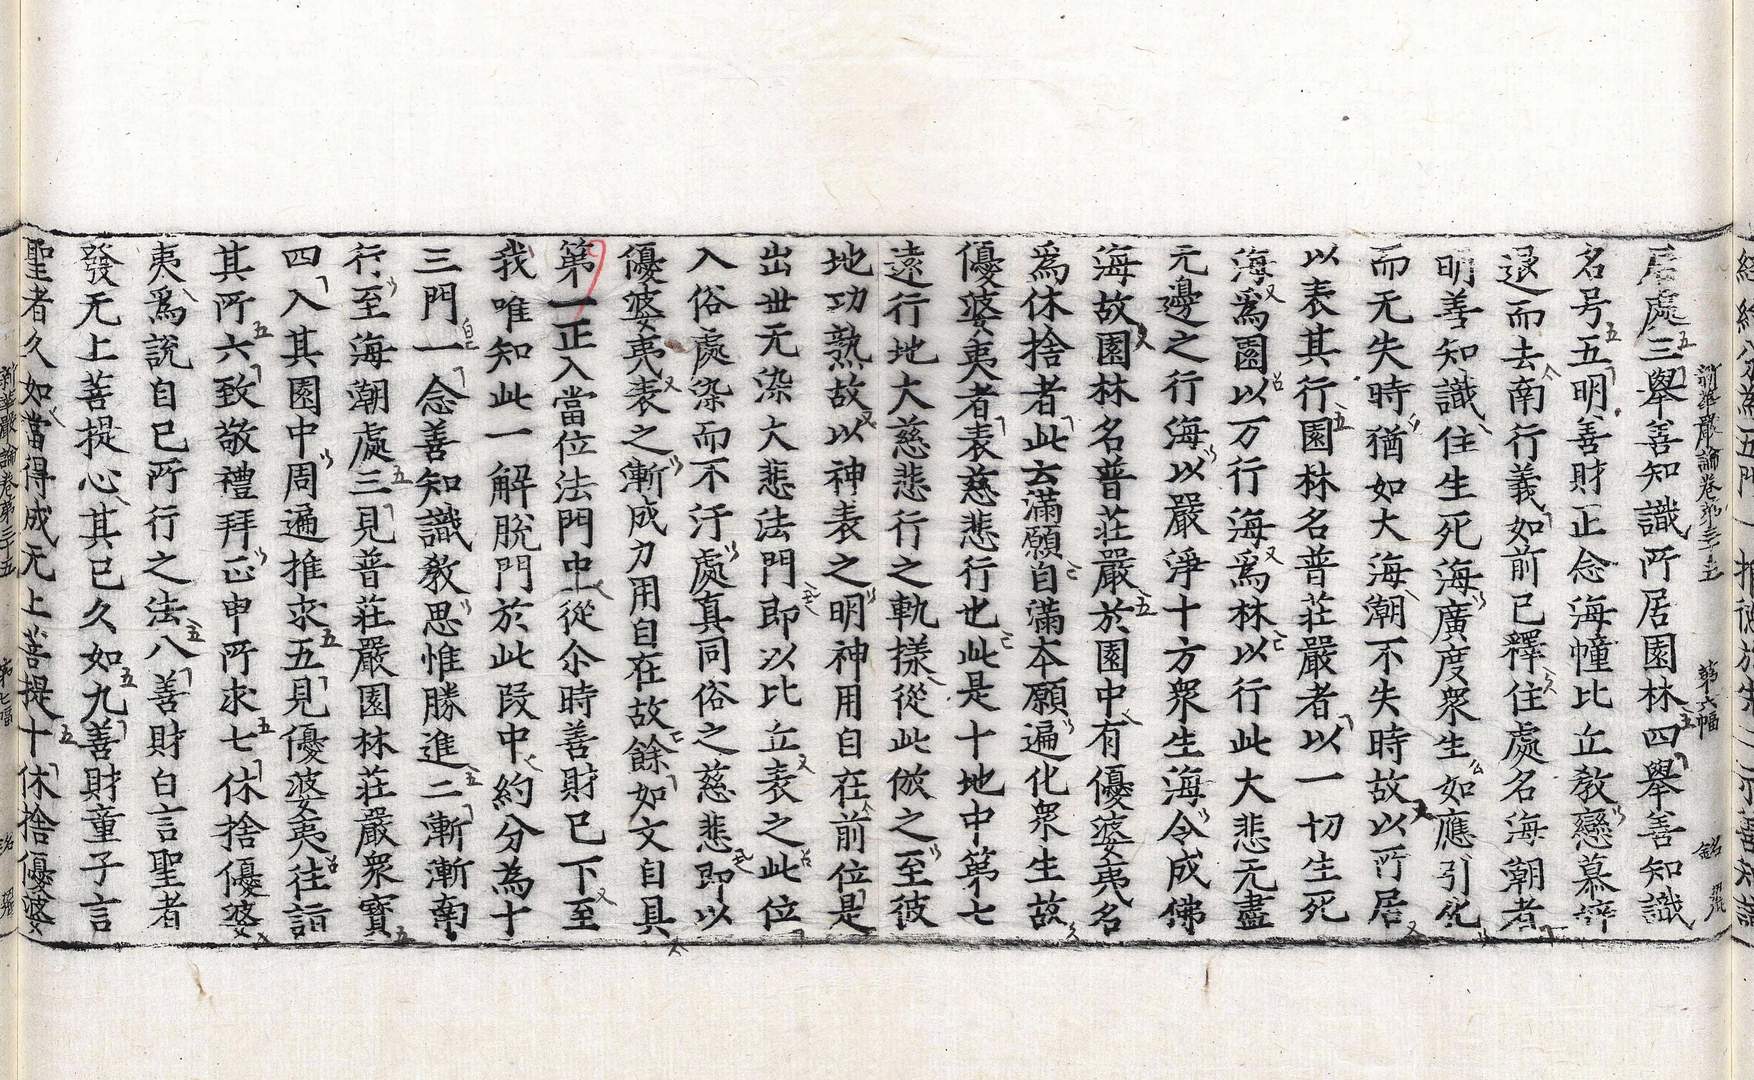 新華嚴論卷第三十五 第六幅 銘 琚
居處三舉善知識所居園林四舉善知識
名号五明善財正念海幢比丘教戀慕辝
退而去南行義如前已釋住處名海潮者
明善知識住生死海廣度衆生如應引化
而无失時猶如大海潮不失時故以所居
以表其行園林名普莊嚴者以一切生死
海爲園以万行海爲林以行此大悲无盡
无邊之行海以嚴淨十方衆生海令成佛
海故園林名普莊嚴於園中有優婆夷名
爲休捨者此云滿願自滿本願遍化衆生故
優婆夷者表慈悲行也此是十地中第七
遠行地大慈悲行之軌樣從此倣之至彼
地功熟故以神表之明神用自在前位是
出世无染大悲法門即以比丘表之此位
入俗處染而不汙處真同俗之慈悲即以
優婆夷表之漸成力用自在故餘如文自具
第一正入當位法門中從尒時善財已下至
我唯知此一解脫門於此段中約分為十
三門一念善知識教思惟勝進二漸漸南
行至海潮處三見普莊嚴園林莊嚴衆寶
四入其園中周遍推求五見優婆夷往詣
其所六致敬禮拜正申所求七休捨優婆
夷爲說自已所行之法八善財白言聖者
發无上菩提心其已久如九善財童子言
聖者久如當得成无上菩提十休捨優婆
新華嚴論卷第三十五 第七幅